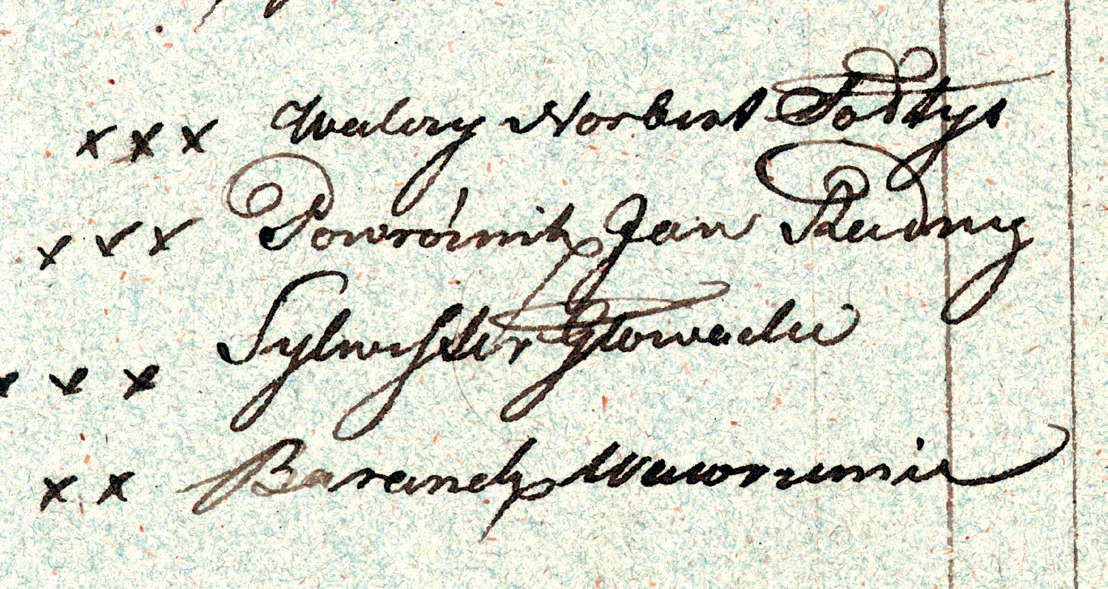 xxx Walery Norbert Sołtys
xxx Powróznik Jan Radny
xxx Sylwester Głowacki
xx Baranek Wawrzyniec